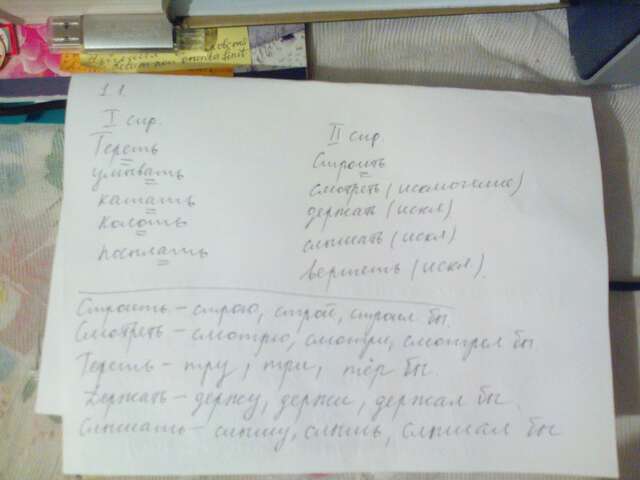 1 1.
I спр.
Тереть
умывать
катать
колоть
посылать
II спр
Строить
смотреть (исключение)
держать (искл)
слышать (искл)
вертеть (искл).
Строить – строю, строй, строил бы.
Смотреть – смотрю, смотри, смотрел бы
Тереть – тру, три, тёр бы.
Держать – держу, держи, держал бы.
Слышать – слышу, слышь, слышал бы